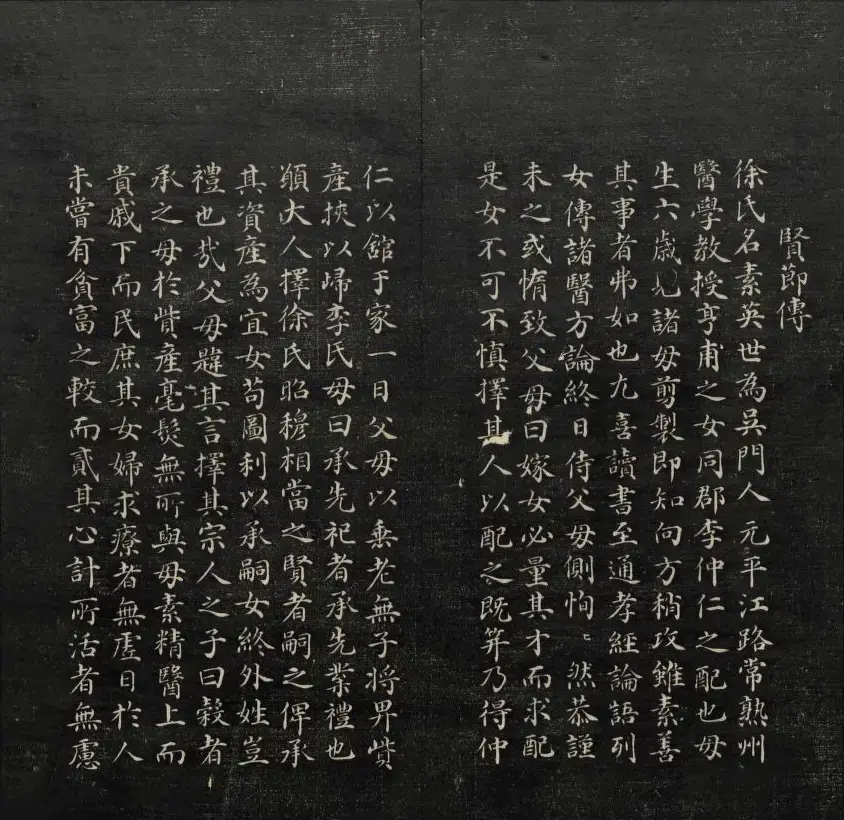 賢節傳
徐氏名素英世為吳門人元平江路常熟州
醫學教授亨甫之女同郡李仲仁之配也母
生六歲見諸母剪製即知向方稍攻雖素善
其事者弗如也尤喜讀書至通孝經論語列
女傳諸醫方論終日侍父母側恂〻然恭謹
未之或惰致父母曰嫁女必量其才而求配
是女不可不慎擇其人以配之既笄乃得仲
仁以館于家一日父母以耄老無子將畀貲
產挾以歸李氏母曰承先祀者承先業禮也
願大人擇徐氏昭穆相當之賢者嗣之俾承
其資產為宜女苟圖利以承嗣女終外姓豈
禮也㦲父母韙其言擇其宗人之子曰穀者
承之母於貲產毫髮無所與母素精醫上而
貴戚下而民庶其女婦求療者無虛日於人
未嘗有貧富之較而貳其心計所活者無慮